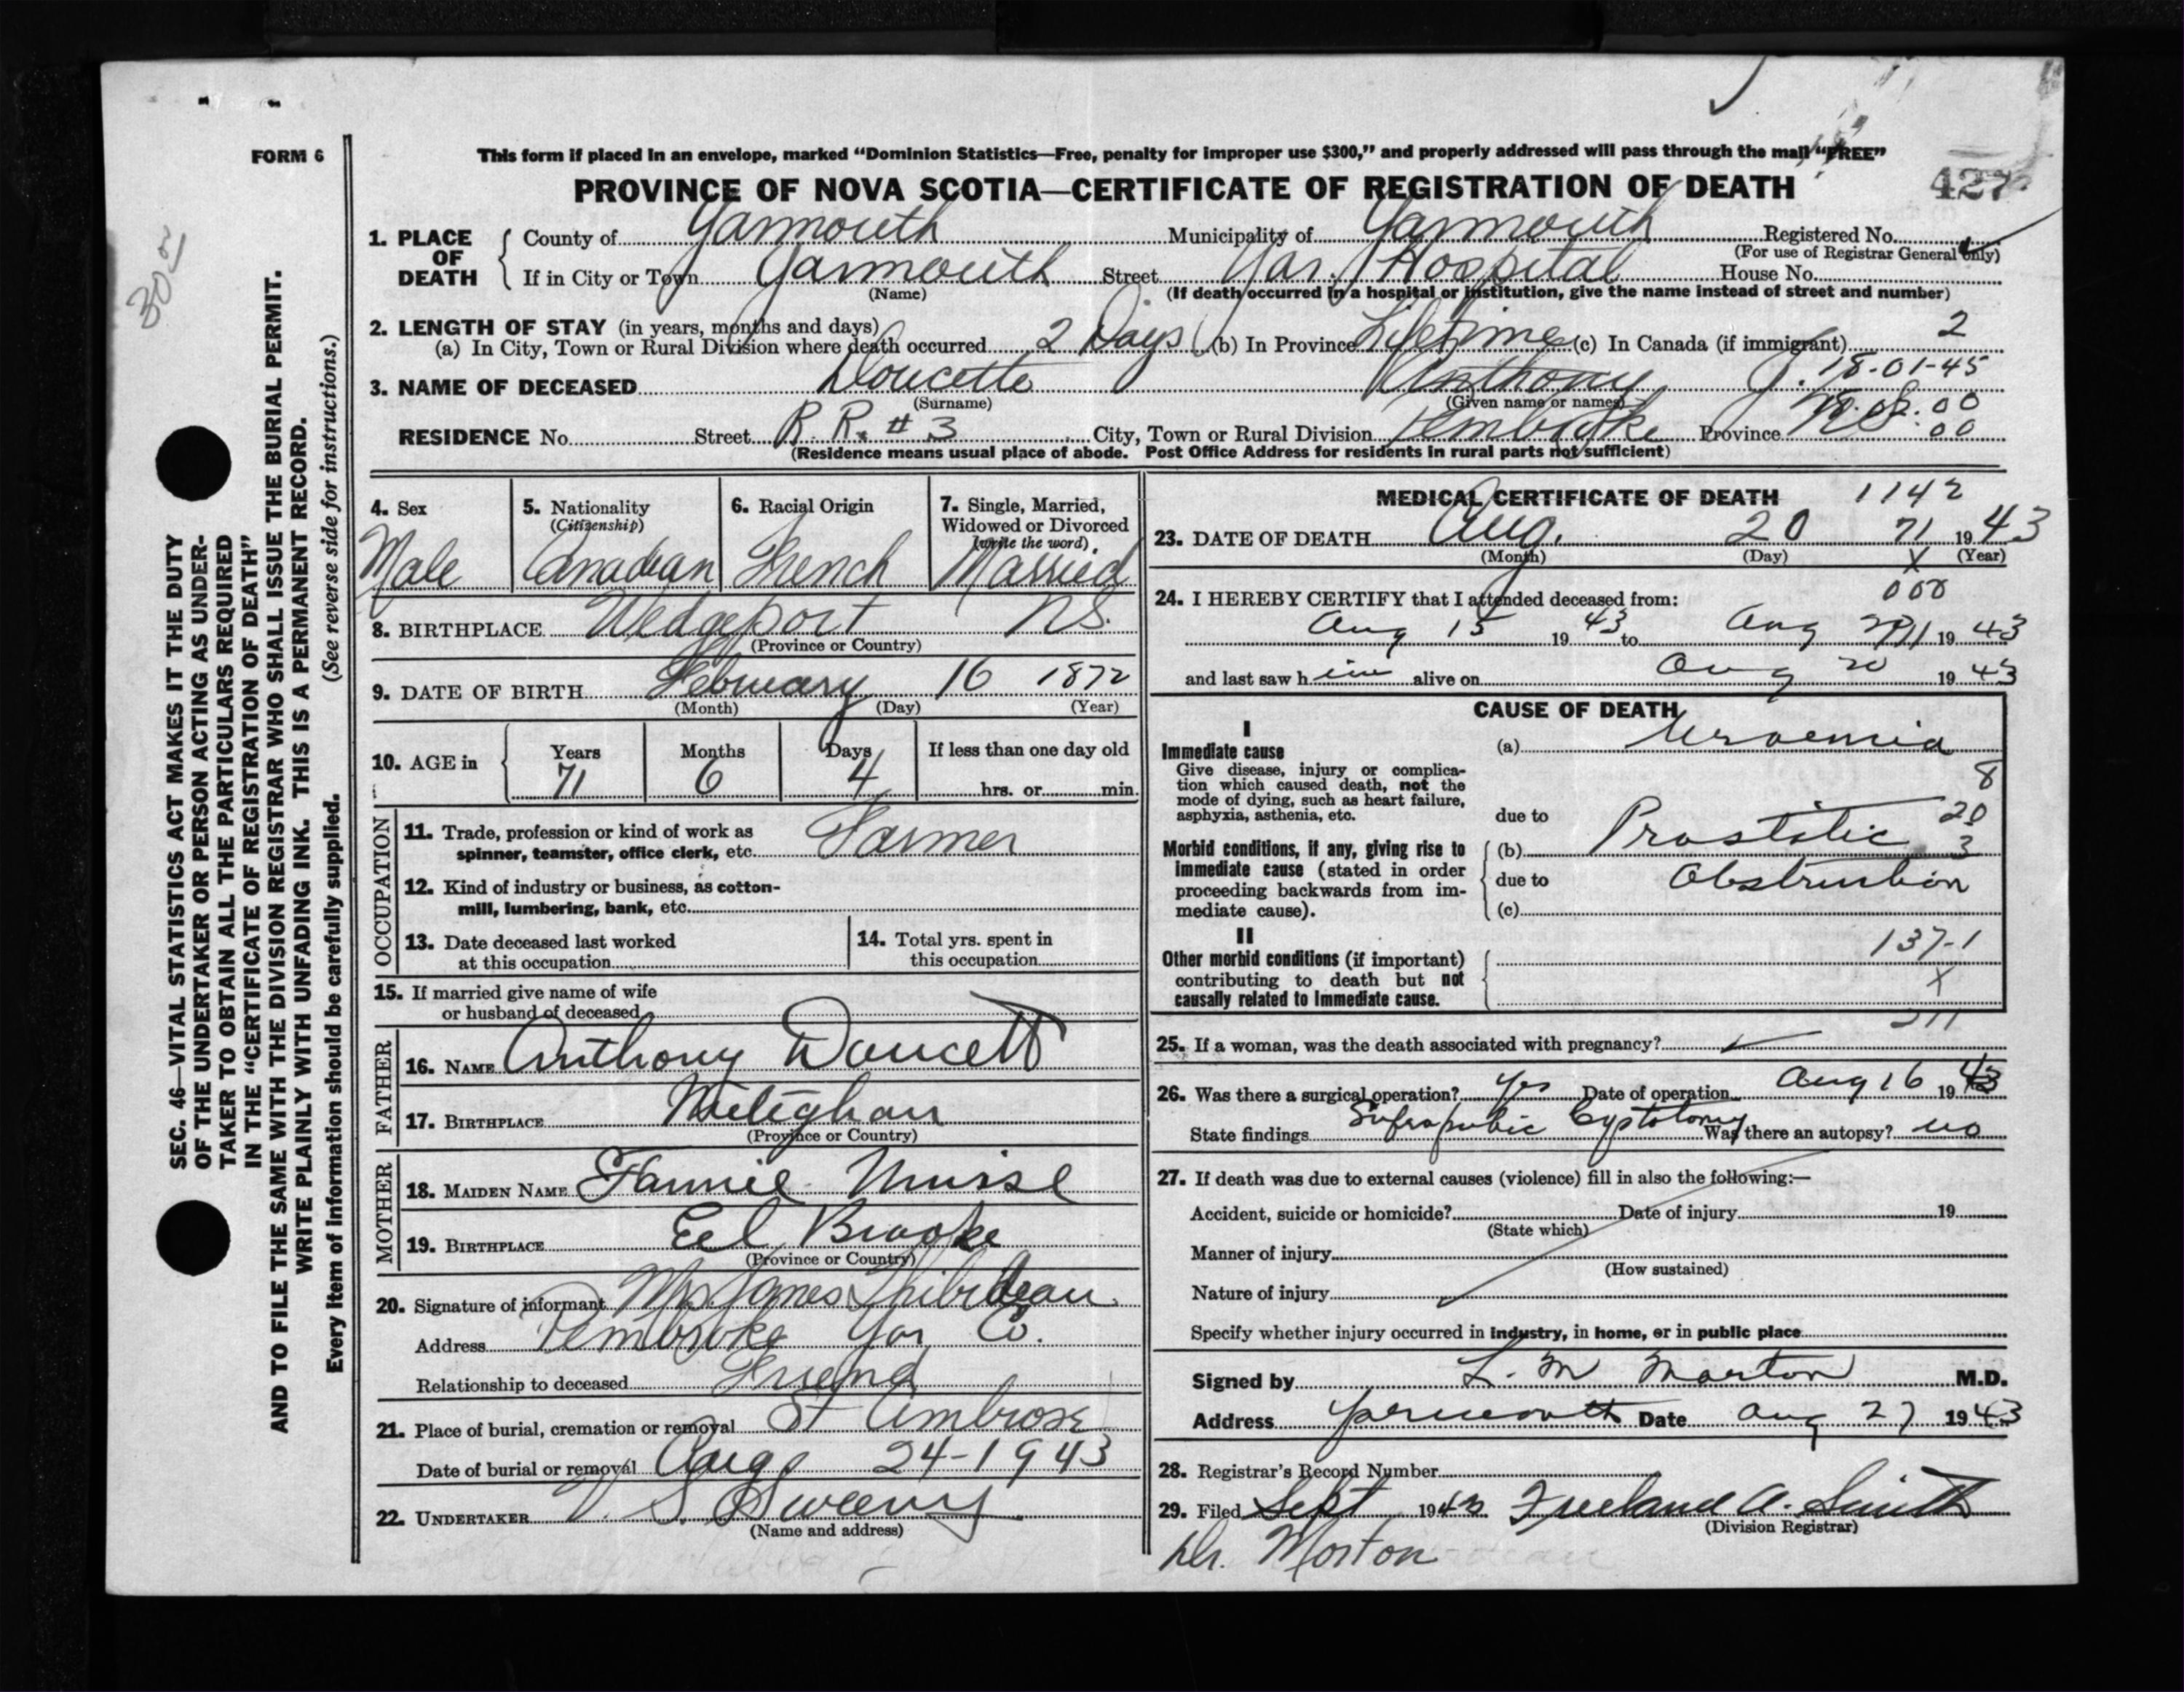 30
FORM 6
This form if placed in an envelope, marked “Dominion Statistics—Free, penalty for improper use $300,” and properly addressed will pass through the mail “FREE”
PROVINCE OF NOVA SCOTIA—CERTIFICATE OF REGISTRATION OF DEATH
427
SEC. 46—VITAL STATISTICS ACT MAKES IT THE DUTY
OF THE UNDERTAKER OR PERSON ACTING AS UNDER-
TAKER TO OBTAIN ALL THE PARTICULARS REQUIRED
IN THE “CERTIFICATE OF REGISTRATION OF DEATH”
AND TO FILE THE SAME WITH THE DIVISION REGISTRAR WHO SHALL ISSUE THE BURIAL PERMIT.
WRITE PLAINLY WITH UNFADING INK. THIS IS A PERMANENT RECORD.
Every item of information should be carefully supplied. (See reverse side for instructions.)
1. PLACE OF DEATH
County of Yarmouth Municipality of Yarmouth Registered No.
(For use of Registrar General only)
If in City or Town Yarmouth Street Yar. Hospital House No.
(Name) (If death occurred in a hospital or institution, give the name instead of street and number)
2. LENGTH OF STAY (in years, months and days)
(a) In City, Town or Rural Division where death occurred 2 Days (b) In Province Lifetime (c) In Canada (if immigrant) 2
3. NAME OF DECEASED Doucette Anthony J. 18-01-45
(Surname) (Given name or names) 00
RESIDENCE No. Street R. R. # 3 City, Town or Rural Division Pembroke Province N.S. 00
(Residence means usual place of abode. Post Office Address for residents in rural parts not sufficient)
4. Sex
Male
5. Nationality
(Citizenship)
Canadian
6. Racial Origin
French
7. Single, Married,
Widowed or Divorced
(write the word)
Married
8. BIRTHPLACE Wedgeport N.S.
(Province or Country)
9. DATE OF BIRTH February 16 1872
(Month) (Day) (Year)
10. AGE in
Years Months Days If less than one day old
71 6 4 hrs. or min.
OCCUPATION
11. Trade, profession or kind of work as
spinner, teamster, office clerk, etc. Farmer
12. Kind of industry or business, as cotton-
mill, lumbering, bank, etc.
13. Date deceased last worked
at this occupation
14. Total yrs. spent in
this occupation
15. If married give name of wife
or husband of deceased
FATHER
16. NAME Anthony Doucett
17. BIRTHPLACE Meteghan
(Province or Country)
MOTHER
18. MAIDEN NAME Fannie Muise
19. BIRTHPLACE Eel Brooke
(Province or Country)
20. Signature of informant Mrs. James Thibideau
Address Pembroke Yar Co.
Relationship to deceased Friend
21. Place of burial, cremation or removal St Ambrose
Date of burial or removal Aug. 24-1943
22. UNDERTAKER V. S. Sweeny
(Name and address)
MEDICAL CERTIFICATE OF DEATH 1142
23. DATE OF DEATH Aug. 20 71 1943
(Month) (Day) X (Year)
24. I HEREBY CERTIFY that I attended deceased from: 000
Aug 15 1943 to Aug 1943
and last saw him alive on Aug 20 1943
CAUSE OF DEATH
I
Immediate cause
Give disease, injury or complica-
tion which caused death, not the
mode of dying, such as heart failure,
asphyxia, asthenia, etc.
(a) Uraemia
8
due to 20
Morbid conditions, if any, giving rise to
immediate cause (stated in order
proceeding backwards from im-
mediate cause).
(b) Prostatic 3
due to Obstruction
(c)
II
Other morbid conditions (if important)
contributing to death but not
causally related to immediate cause.
137-1
X
25. If a woman, was the death associated with pregnancy?
26. Was there a surgical operation? Yes Date of operation Aug 16 1943
State findings Suprapubic Cystotomy Was there an autopsy? no
27. If death was due to external causes (violence) fill in also the following:—
Accident, suicide or homicide? Date of injury 19
(State which)
Manner of injury
(How sustained)
Nature of injury
Specify whether injury occurred in industry, in home, or in public place
Signed by L. M Morton M.D.
Address Yarmouth Date Aug 27 1943
28. Registrar's Record Number
29. Filed Sept 1943 Freeland A. Smith
(Division Registrar)
Dr. Morton